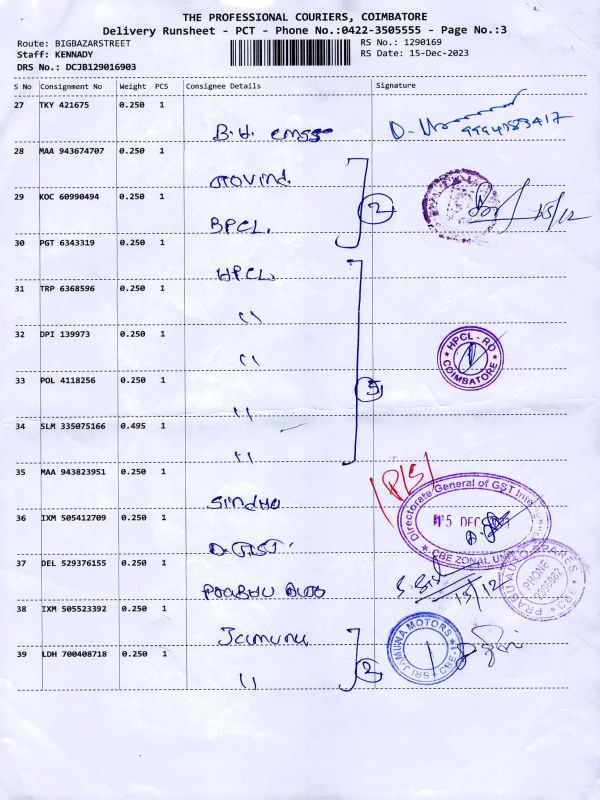 THE PROFESSIONAL COURIERS, COIMBATORE
Delivery Runsheet - PCT - Phone No.:0422-3505555 - Page No.:3
Route: BIGBAZARSTREET
Staff: KENNADY
DRS No.: DCJB129016903
RS No.: 1290169
RS Date: 15-Dec-2023
S No Consignment No Weight PCS Consignee Details Signature
27 TKY 421675 0.250 1
B.H.
28 MAA 943674707 0.250 1
Govind.
29 KOC 60990494 0.250 1
BPCL.
2
15/12
30 PGT 6343319 0.250 1
HPCL.
31 TRP 6368596 0.250 1
"
32 DPI 139973 0.250 1
"
HPCL - RO
COIMBATORE
33 POL 4118256 0.250 1
"
5
34 SLM 335075166 0.495 1
"
35 MAA 943823951 0.250 1
Sindhu
36 IXM 505412709 0.250 1
D.GST.
Directorate General of GST
15 DEC
CBE ZONAL UNIT
37 DEL 529376155 0.250 1
Prabhu Auto
15/12
PHONE
38 IXM 505523392 0.250 1
Jamuna
SRI JAMUNA MOTORS
CBE
39 LDH 700408718 0.250 1
"
2